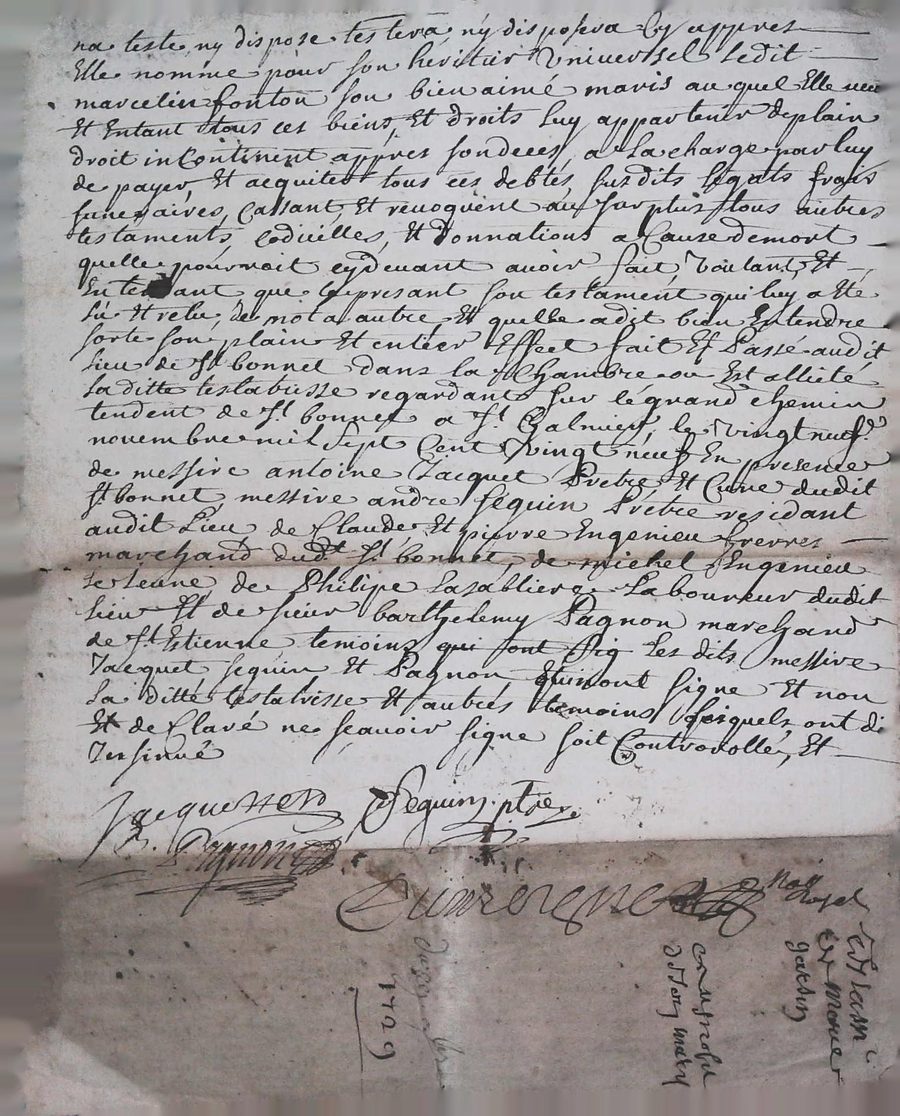 na testé ny disposé testera ny disposera cy appres
Elle nomme pour son heritier Universel ledit
marcelin fonton son bien aimé maris auquel Elle veu
Et Entant tous ces biens, Et droits luy appartenir de plain
droit incontinent appres son deces, a la charge par luy
de payer, Et acquiter tous ces debtes, susdits légats frais
funeraires, Cassant, Et revoquent au surplus tous autres
testaments, codicilles, Et donnations a Cause de mort
quelle pourroit cydevant avoir fait, Voulant, Et
Entendant que le presant son testament qui luy a Eté
Lû Et relu, de mot a autre Et quelle a dit bien Entendre
sorte son plain Et entier Effect fait Et Passé audit
Lieu de St. bonnet dans la Chambre ou Est allitée
La ditte testatrisse regardant sur le grand chemin
tendent de St. bonnet a St. Galmier, le vingt neufe.
novembre mil sept Cent Vingt neuf En presence
de messire antoine Jacquet Prêtre Et Curé dudit
St. bonnet messire andré Seguin Prêtre residant
audit Lieu, de Claude Et pierre Engenieu frerres
marchand dudt. St. bonnet, de michel Engenieu
le Jeune, de Philipe Lasabliere Laboureur dudit
lieu Et de sieur barthelemy Pagnon marchand
de St. Estienne temoins qui ont sig les dits messire
Jacquet Seguin Et Pagnon qui ont signe Et non
La ditte testatrisse Et autres temoins lesquels, ont di
Et de Claré ne sçavoir signe soit Controrollé, Et
Insinué
Jacquet Seguin ptre
Pagnon
1729